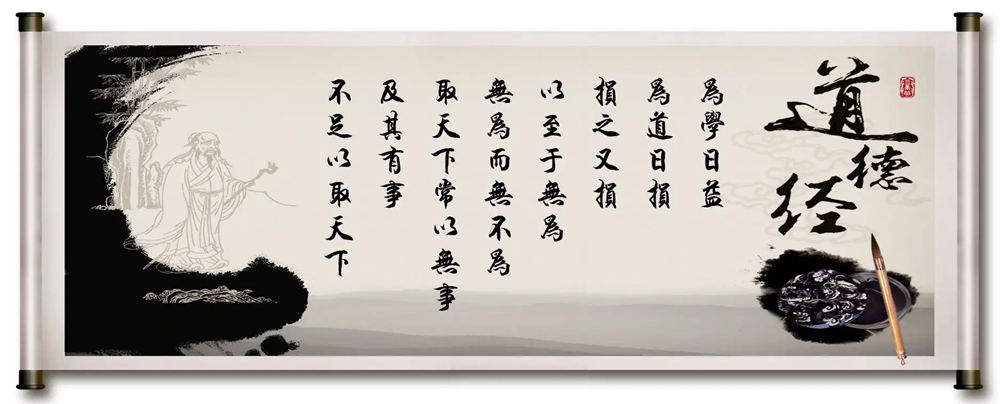 道德经
為學日益
為道日損
損之又損
以至于無為
無為而無不為
取天下常以無事
及其有事
不足以取天下